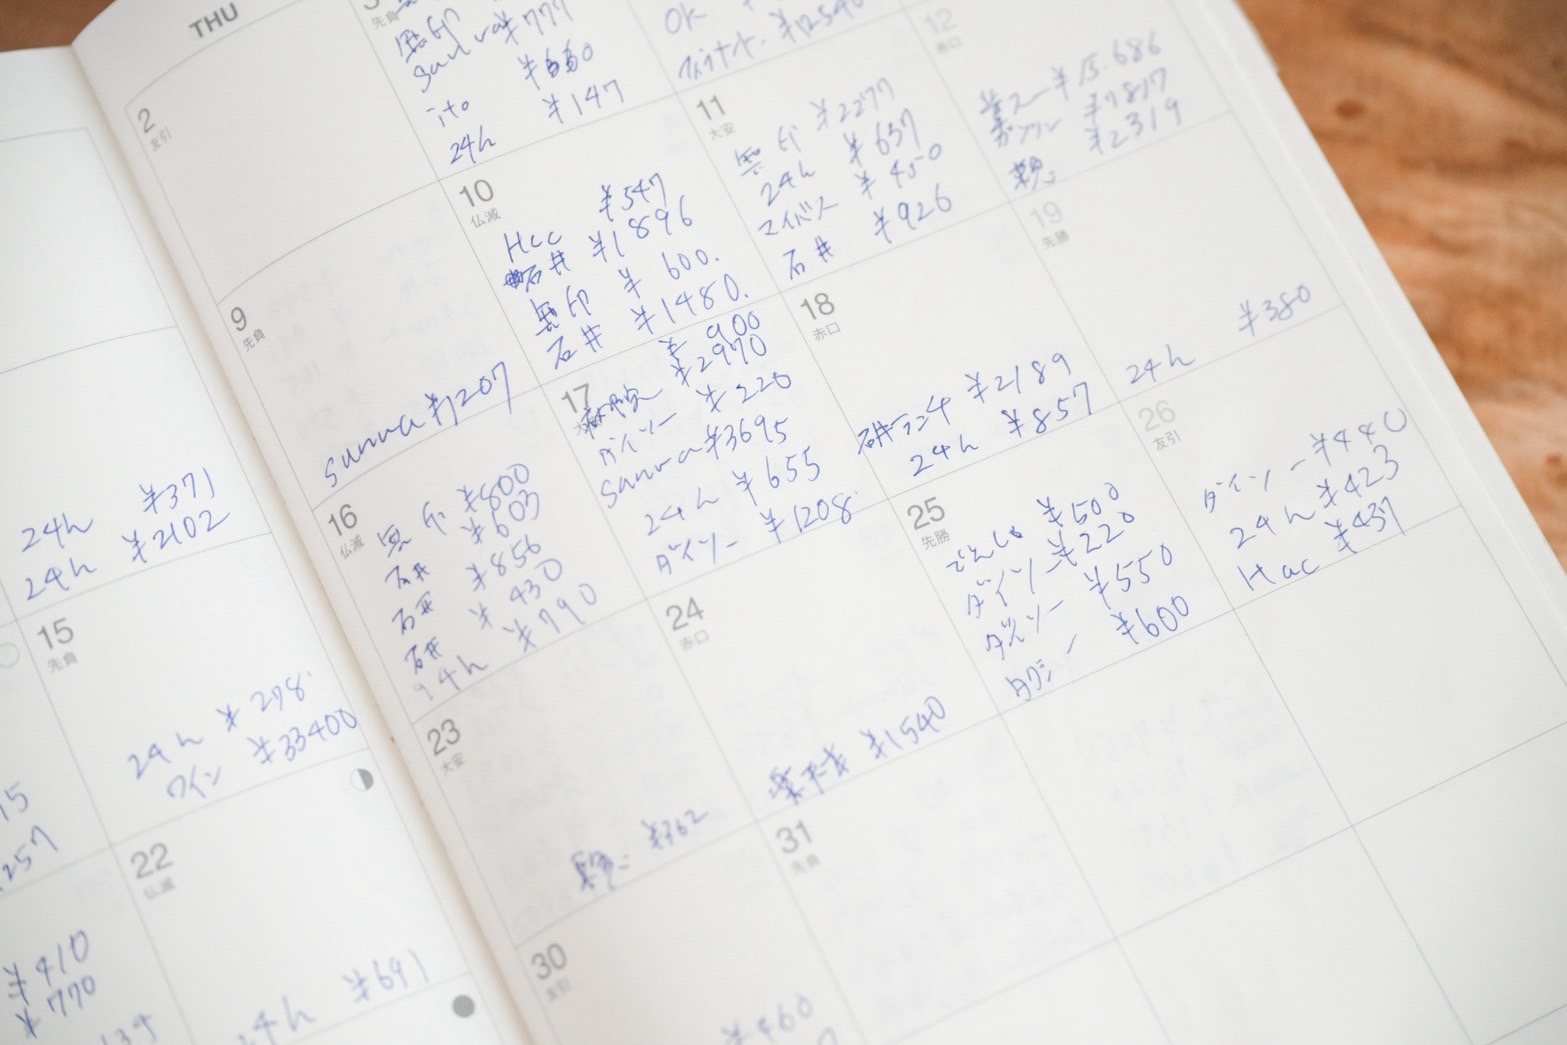 THU
2
友引
先負
無印
sanwa ¥777
ito ¥660
24h ¥147
OK
12
赤口
¥15.686
¥7817
¥2319
9
先負
sanwa ¥1207
10
仏滅
Hac ¥547
石井 ¥1896
無印 ¥600.
石井 ¥1480.
11
大安
無印 ¥2277
24h ¥637
マイバス ¥450
石井 ¥926
15
先負
24h ¥278
ワイン ¥33400
24h ¥371
24h ¥2102
16
仏滅
無印 ¥800
石井 ¥603
石井 ¥856
石井 ¥430
24h ¥790
17
¥900
¥2970
ダイソー ¥220
sanwa ¥3695
24h ¥655
ダイソー ¥1208
18
赤口
石井ランチ ¥2189
24h ¥857
19
先勝
24h ¥380
22
仏滅
24h ¥691
23
大安
¥362
24
赤口
¥1540
25
先勝
¥500
ダイソー ¥220
ダイソー ¥550
タクシー ¥600
26
友引
ダイソー ¥440
24h ¥423
Hac ¥437
¥410
¥770
30
友引
¥460
31
先負